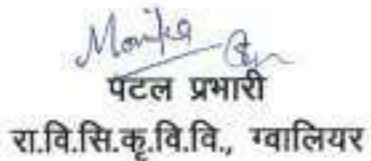 Monika
पटल प्रभारी
रा.वि.सि.कृ.वि.वि., ग्वालियर